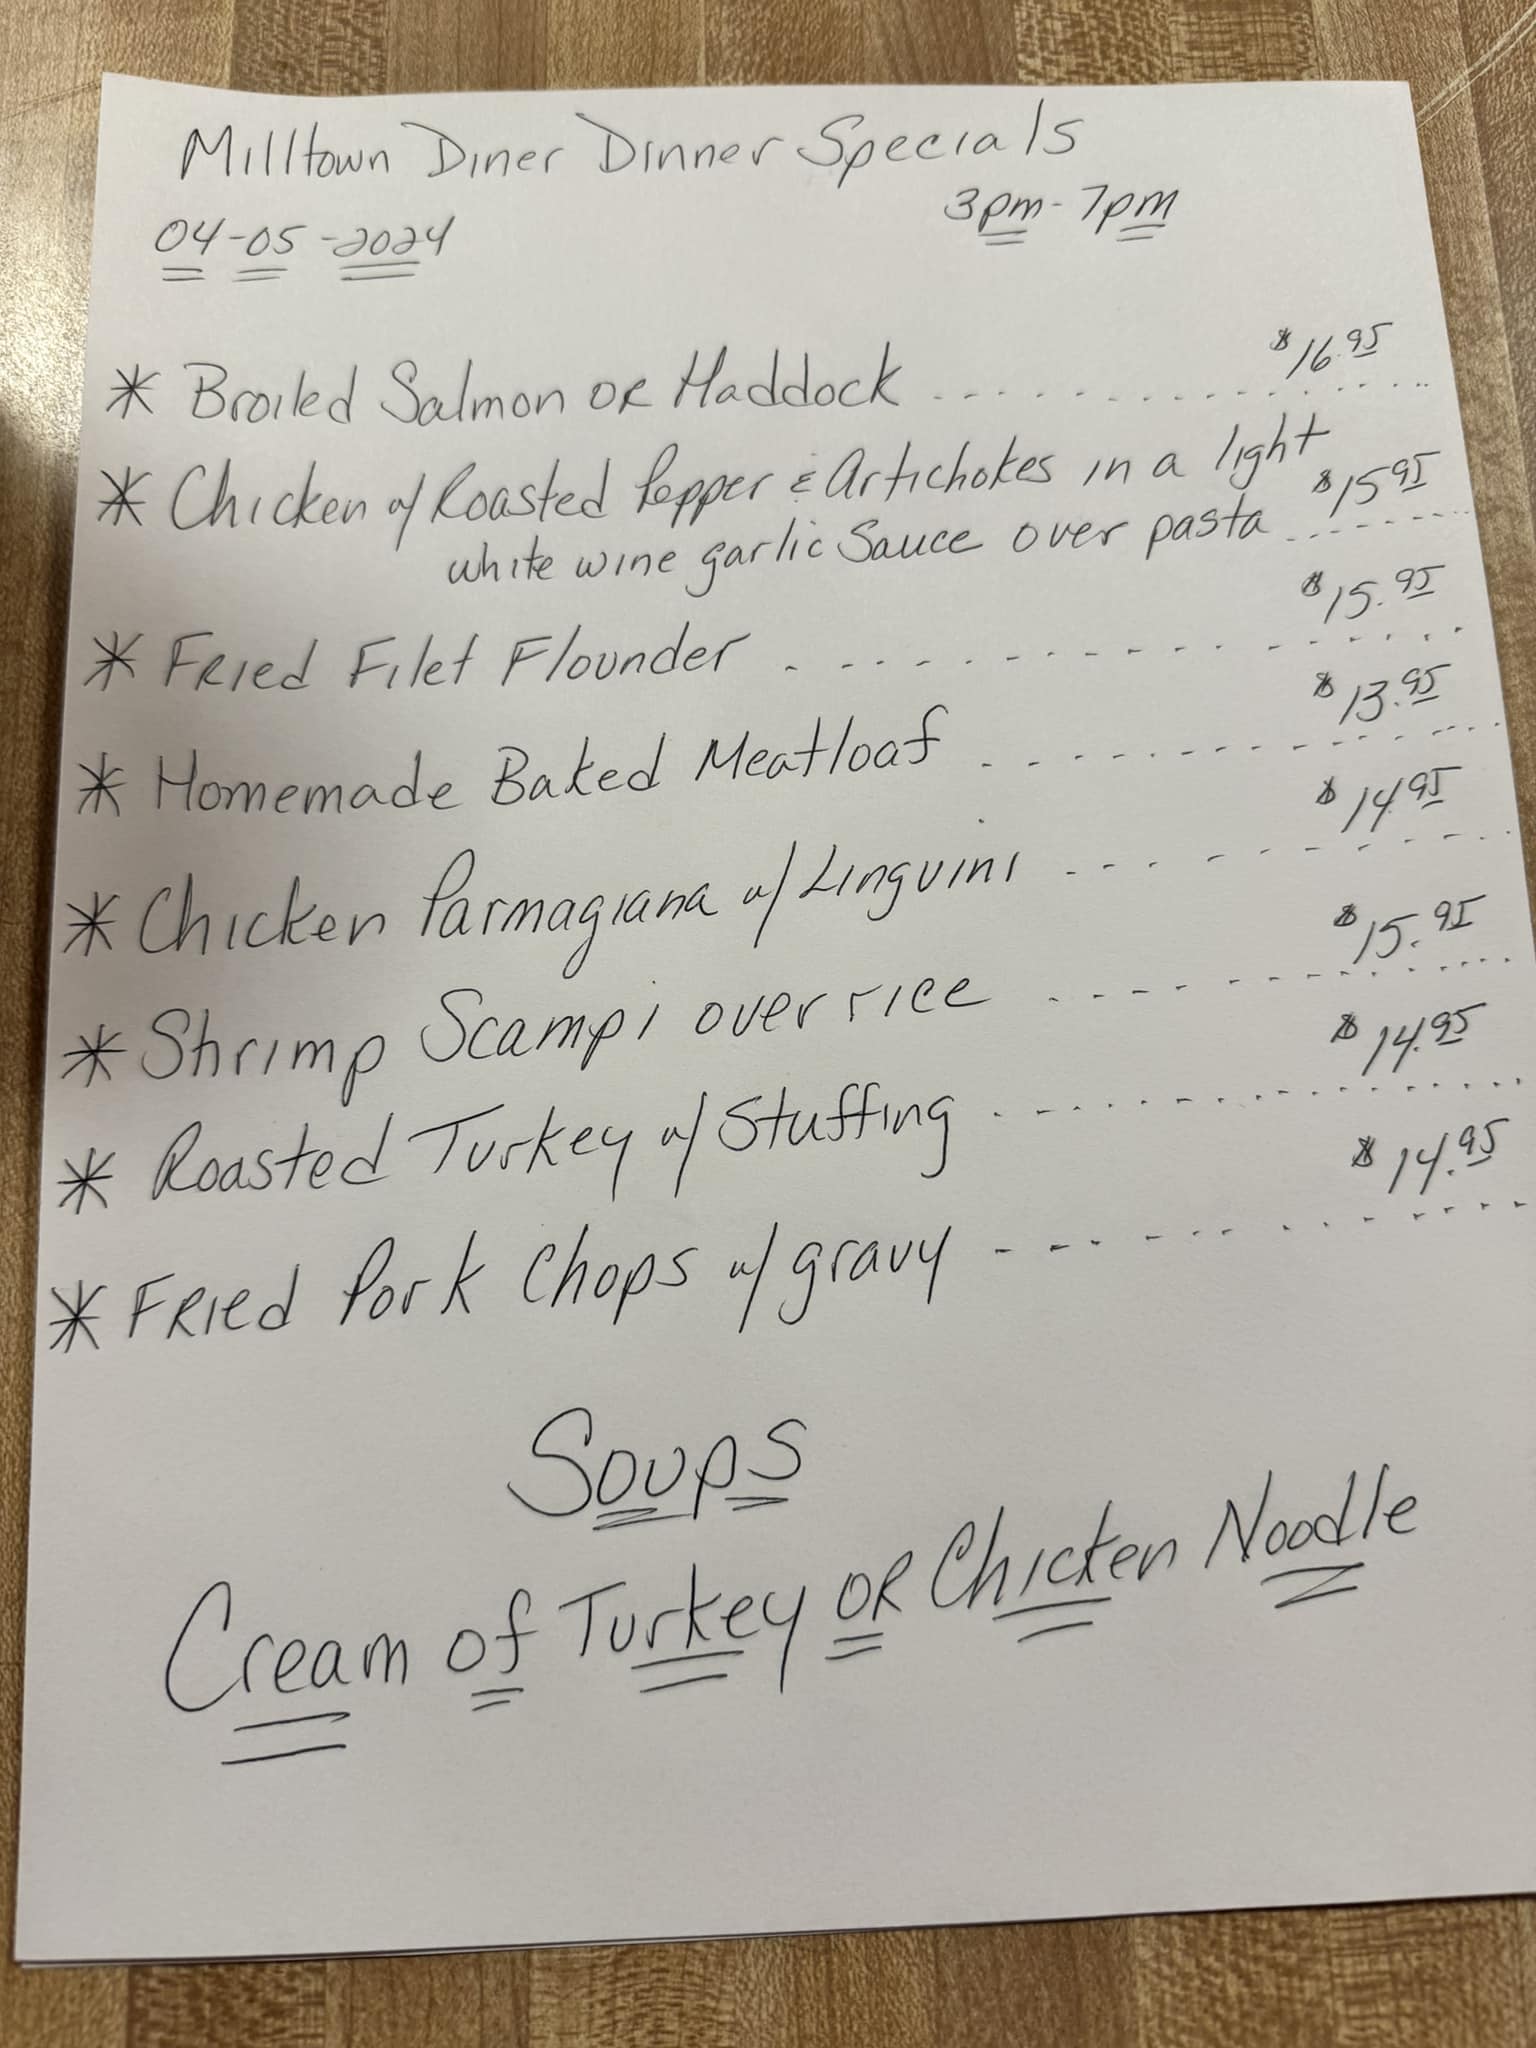 Milltown Diner Dinner Specials
04-05-2024 3pm-7pm
* Broiled Salmon OR Haddock .......... $16.95
* Chicken w/ Roasted Pepper & Artichokes in a light
white wine garlic Sauce over pasta ...... $15.95
* Fried Filet Flounder .......... $15.95
* Homemade Baked Meatloaf .......... $13.95
* Chicken Parmagiana w/ Linguini .......... $14.95
* Shrimp Scampi over rice .......... $15.95
* Roasted Turkey w/ Stuffing .......... $14.95
* Fried Pork Chops w/ gravy .......... $14.95
Soups
Cream of Turkey OR Chicken Noodle